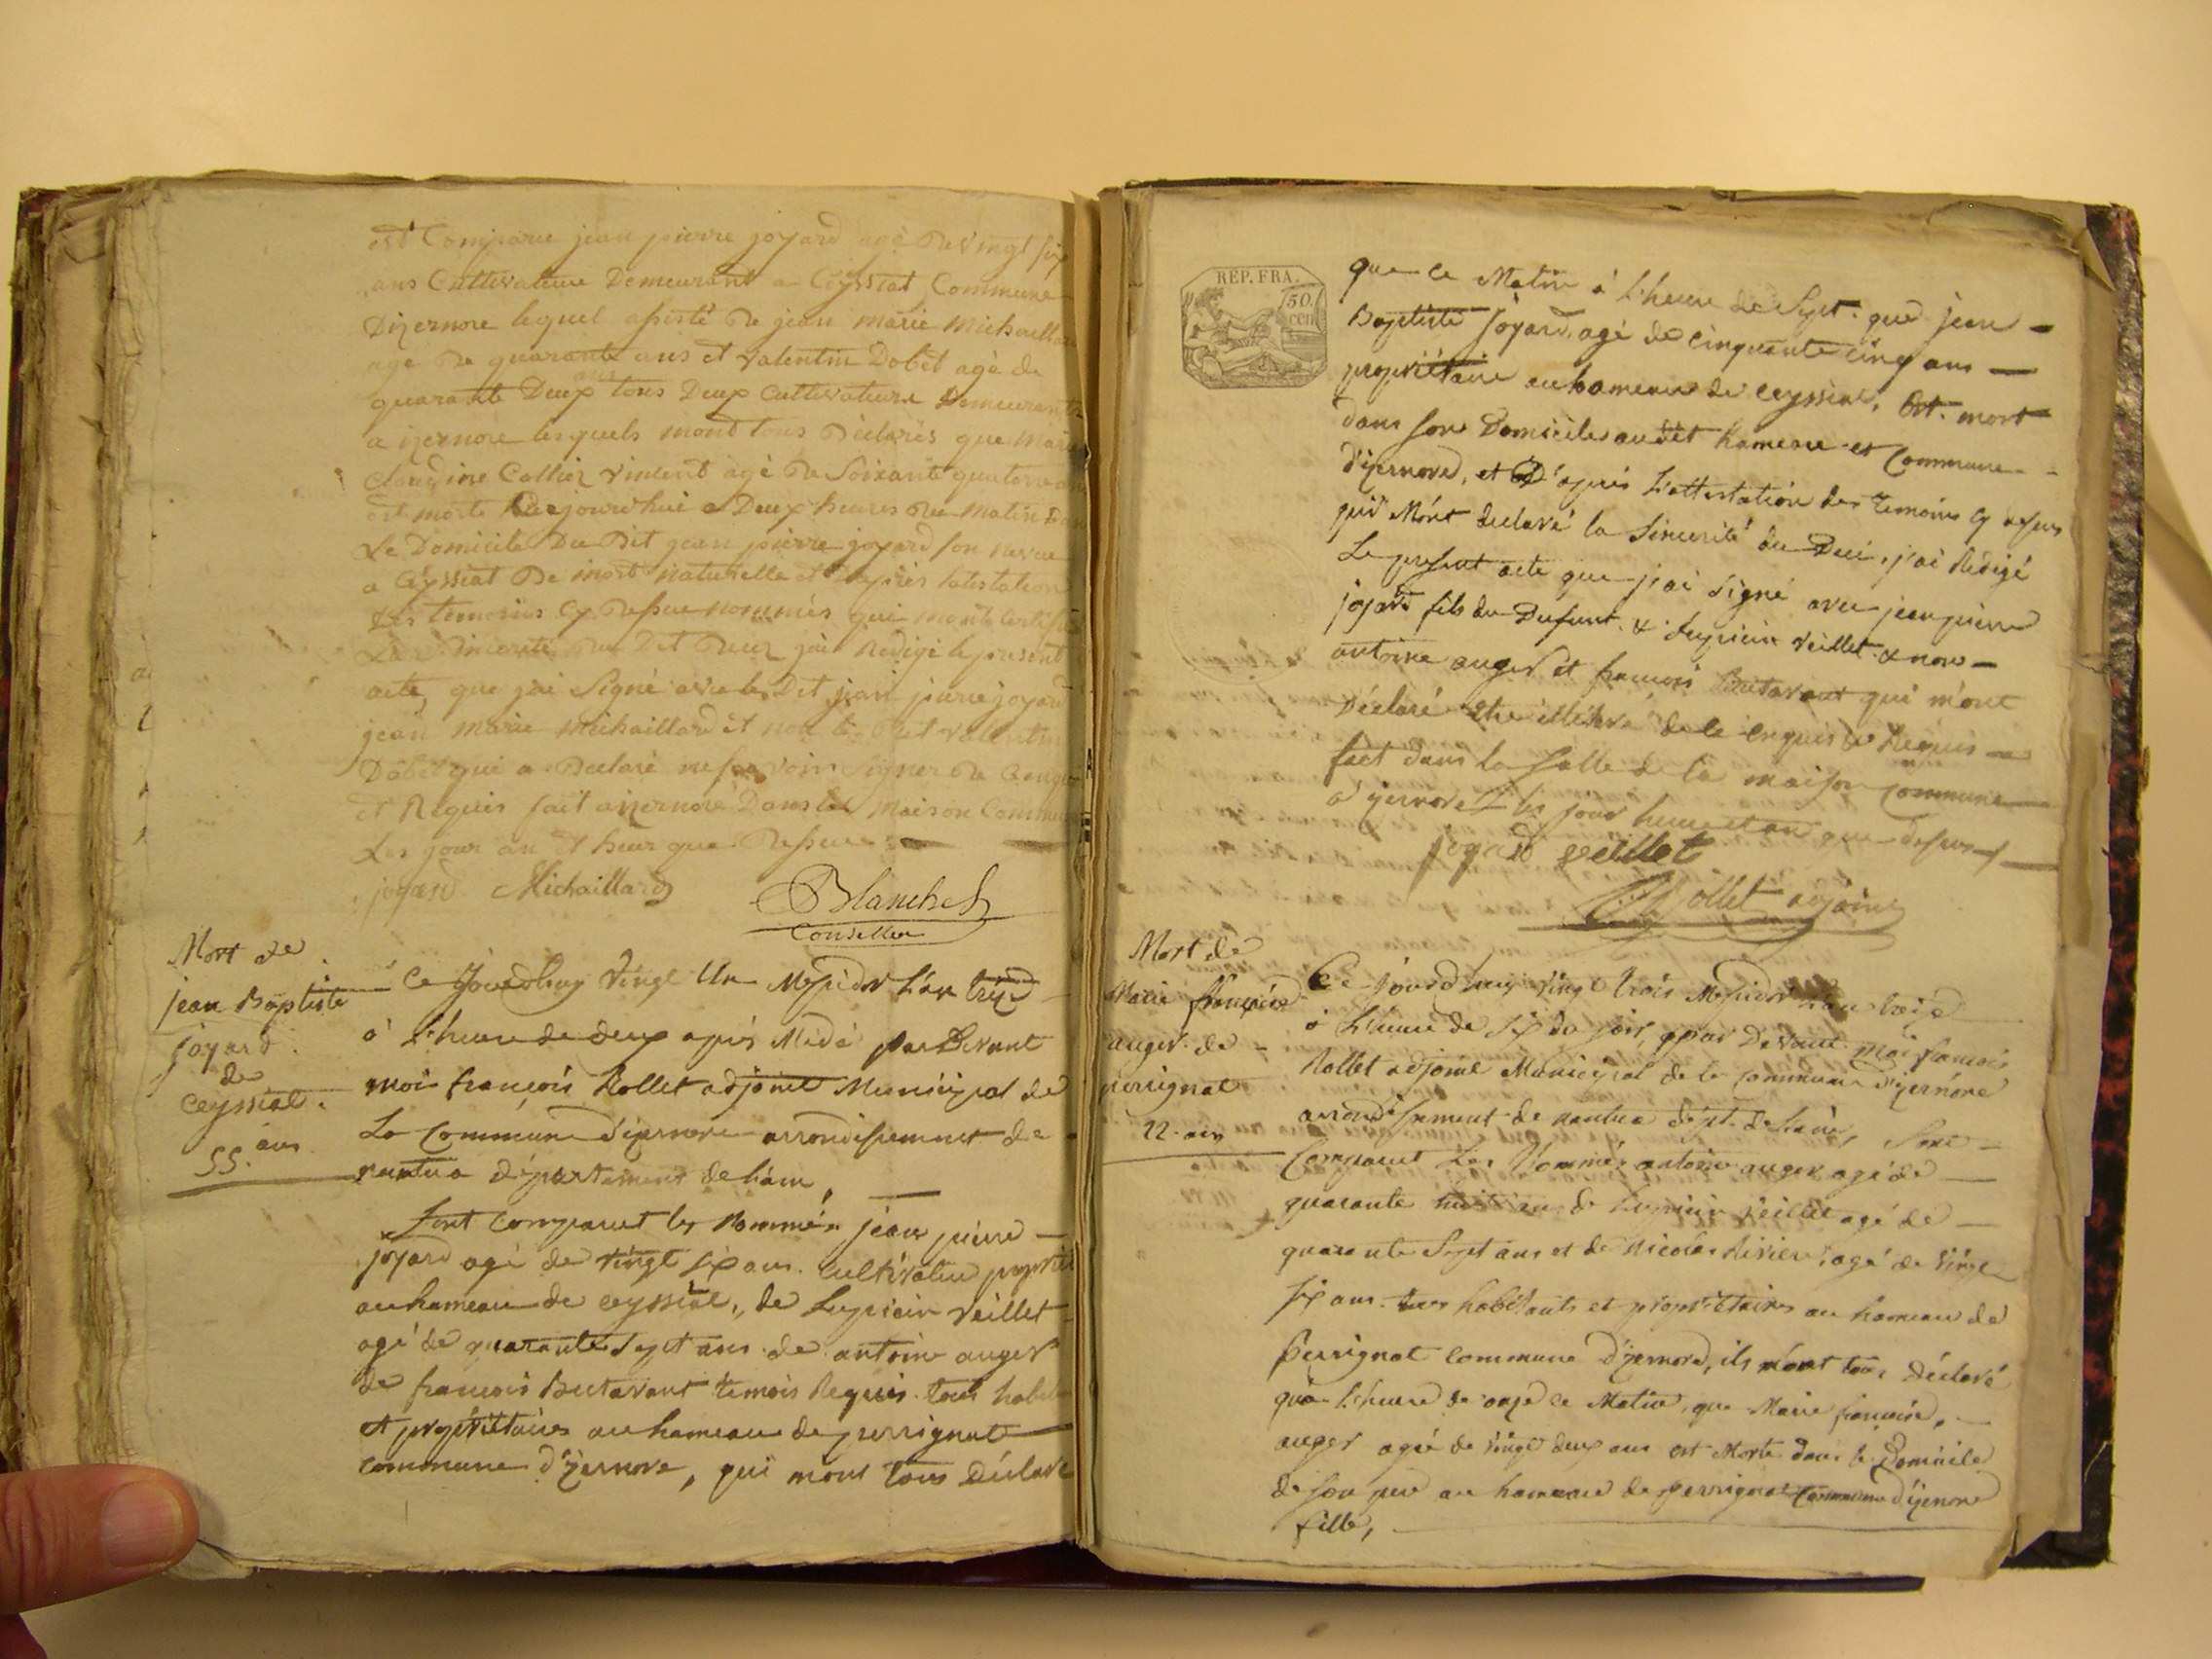 est Comparu jean pierre joyard agé De vingt six
ans Cultivateur Demeurant a Ceyssiat Commune
Dizernore lequel assisté de jean marie Michaillard
agé De quarante ans et valentin Dobet agé de
quarante Deux ans tous Deux Cultivateurs Demeurants
a izernore lesquels mont tous Déclarés que Marie
Claudine Collier vincent agé De Soixante quatorze ans
est morte Cejourd'hui a Deux heures Du matin Dans
Le Domicile Du Dit jean pierre joyard son neveu
a Ceyssiat De mort naturelle et Daprès latestation
Des temoins Cy Dessue nommés qui mont Certifié
La Sincerité Du Dit Deces jai Redigé le present
acte, que jai Signé avec le Dit jean pierre joyard
jean marie Michaillard et non le Dit valentin
Dobet qui a Declaré ne savoir Signer De Ce enquis
et Requis fait a izernore Dans La Maison Commune
Les jour an et heur que Dessue
joyard Michaillard Blanchet
Conseiller
Mort de
jean Baptiste
joyard
de
Ceyssiat.
55. ans
Ce Jourdhuy Vingt Un Messidor L'an treize
à L'heure de deux après Midi par Devant
moi françois Rollet adjoint Municipal de
La Commune d'izernore arrondissement de
nantua département de L'ain,
Sont comparut les Nommés jean pierre
joyard agé de vingt six ans. cultivateur propriét
au hameau de ceyssiat, de Lupicin Veillet
agé de quarante Sept ans de antoine auger
de francois Butavant temois Requis tous habit
et propriétaires au hameau de perrignat
commune d'izernore, qui mont tous Déclaré
REP. FRA.
50.
cen
que ce Matin à L'heure de Sept. que jean
Baptiste joyard, agé de cinquante cinq ans
propriétaire au hameau de ceyssiat, Est mort
dans son Domicile au dit hameau et Commune
d'izernore, et D'après L'attestation des temoins cy dessus
qui M'ont declaré la Sincerité du Deci, j'ai Rédigé
Le present acte que j'ai signé avec jean pierre
joyard fils du Defunt & Lupicin Veillet & non
antoine auger et francois Butavant qui m'ont
Déclaré être illitéré de le enquis & Requis
fait dans la salle de la maison commune
d'izernore les jour heure et an que dessus
joyard veillet
Rollet adjoint
Mort de
Marie françoise
auger de
perrignat
22. ans
Ce Jourd huy Vingt trois Messidor L'an treize
à L'heure de six du soir, par Devant moi francois
Rollet adjoint Municipal de la commune d'izernore
arrondissement de nantua dept. de L'ain, Sont
Comparut Les Nommés antoine auger agé de
quarante huit ans de Lupicin Veillet agé de
quarante Sept ans et de Nicolas Rivier, agé de Vingt
six ans. tous habitants et propriétaires au hameau de
Perrignat commune d'izernore, ils m'ont tous Déclaré
qu'à L'heure de onze ce Matin, que Marie francoise,
auger agée de Vingt deux ans est Morte dans le Domicile
de son pere au hameau de perrignat commune d'izernore
fille,